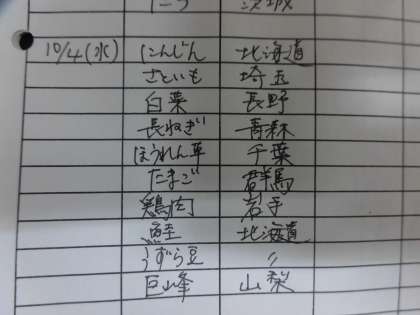 茨城
10/4(水) にんじん 北海道
さといも 埼玉
白菜 長野
長ねぎ 青森
ほうれん草 千葉
たまご 群馬
鶏肉 岩手
鮭 北海道
うずら豆 〃
巨峰 山梨